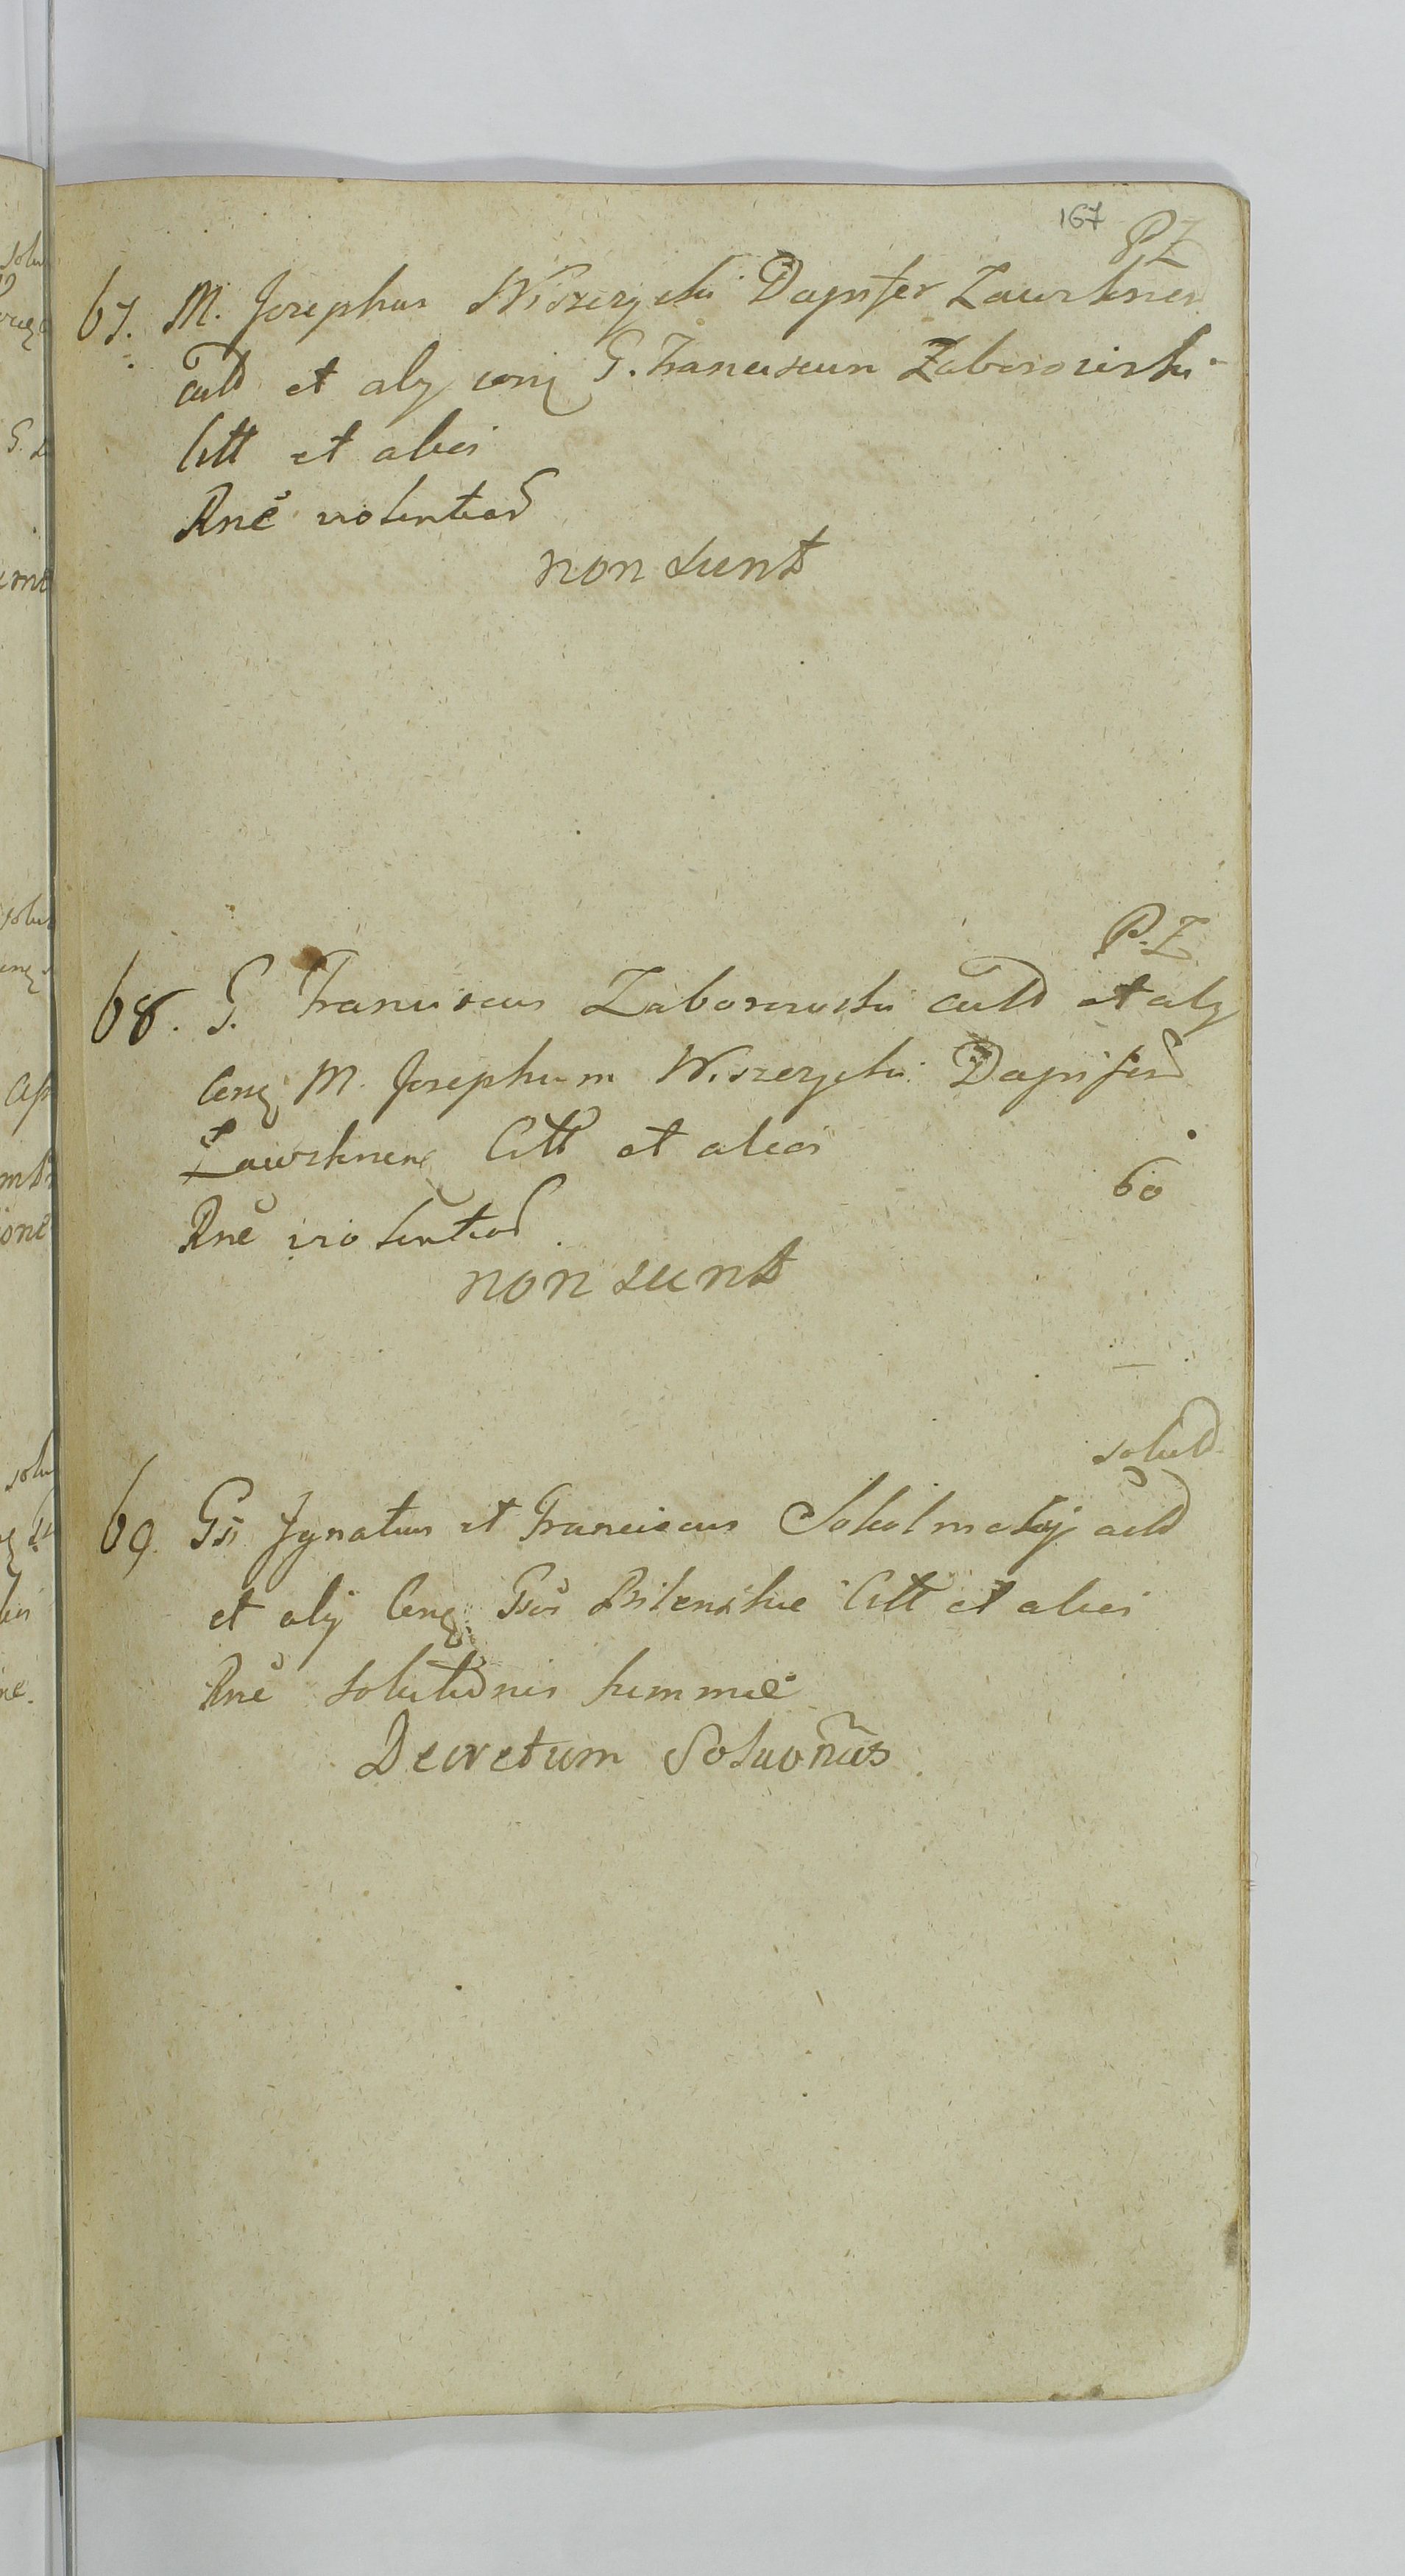 167 P.Z
67. M. Josephus Wiszczycki Dapifer Zawskrnen
actt et alij conq G. Franciscum Zaborowski
Citt et alios
Rne violentiar
non sunt
P.Z
68. G. Franciscus Zaborowski actt et alij
Conq M. Josephum Wiszczycki Dapifer
Zawskrnen Citt et alios
60
Rne violentiar
non sunt
solut
69. Gsi Ignatius et Franciscus actt
et alij Conq Gsos Citt et alios
Rne solutionis summae
Decretum Soluonis